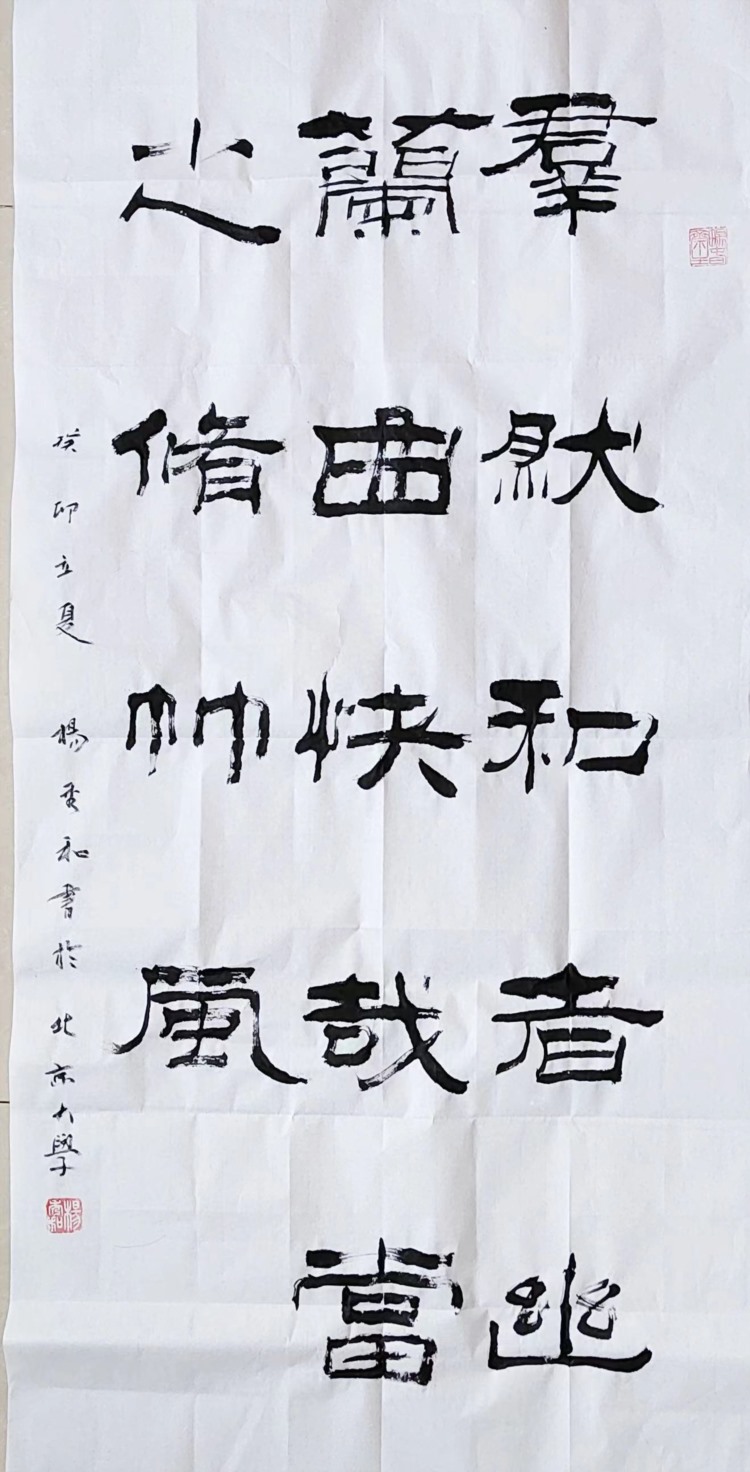 羣然和者幽
蘭曲快哉當
之脩竹風
癸卯立夏 楊和書於北京大學